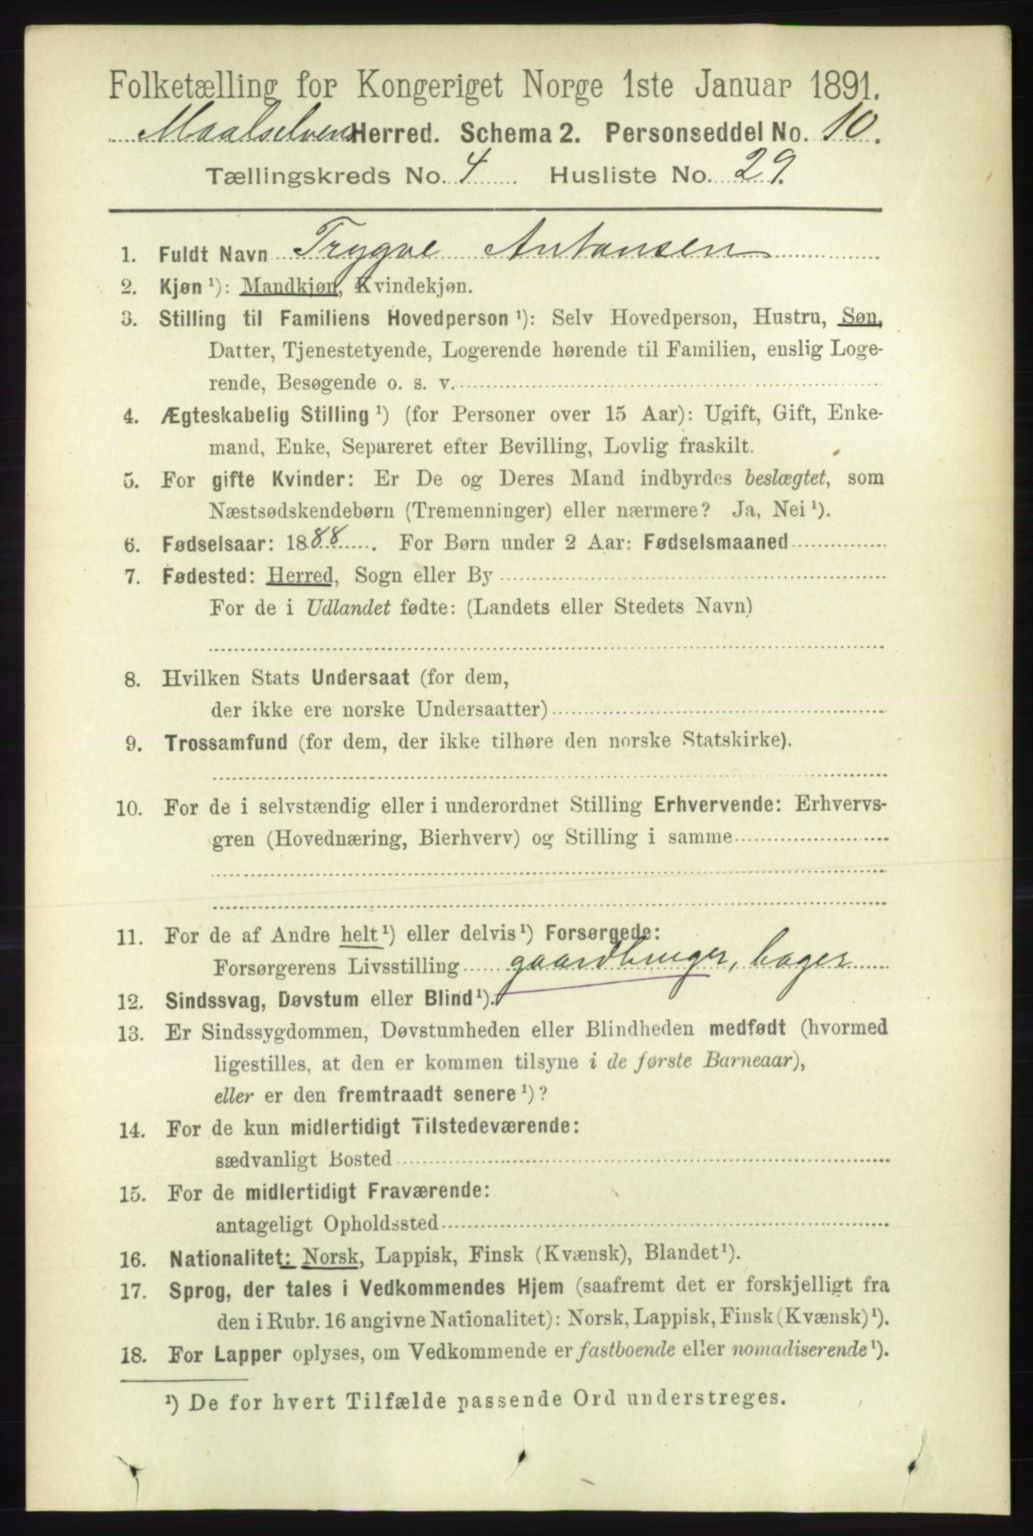 Folketælling for Kongeriget Norge 1ste Januar 1891.
Maalselvens Herred. Schema 2. Personseddel No. 10.
Tællingskreds No. 4 Husliste No. 29.
1. Fuldt Navn Trygve Antonsen
2. Kjøn ¹): Mandkjøn, Kvindekjøn.
3. Stilling til Familiens Hovedperson ¹): Selv Hovedperson, Hustru, Søn,
Datter, Tjenestetyende, Logerende hørende til Familien, enslig Loge-
rende, Besøgende o. s. v.
4. Ægteskabelig Stilling ¹) (for Personer over 15 Aar): Ugift, Gift, Enke-
mand, Enke, Separeret efter Bevilling, Lovlig fraskilt.
5. For gifte Kvinder: Er De og Deres Mand indbyrdes beslægtet, som
Næstsødskendebørn (Tremenninger) eller nærmere? Ja, Nei ¹).
6. Fødselsaar: 1888. For Børn under 2 Aar: Fødselsmaaned
7. Fødested: Herred, Sogn eller By
For de i Udlandet fødte: (Landets eller Stedets Navn)
8. Hvilken Stats Undersaat (for dem,
der ikke ere norske Undersaatter)
9. Trossamfund (for dem, der ikke tilhøre den norske Statskirke).
10. For de i selvstændig eller i underordnet Stilling Erhvervende: Erhvervs-
gren (Hovednæring, Bierhverv) og Stilling i samme
11. For de af Andre helt ¹) eller delvis ¹) Forsørgede:
Forsørgerens Livsstilling gaardbruger, bager
12. Sindssvag, Døvstum eller Blind ¹).
13. Er Sindssygdommen, Døvstumheden eller Blindheden medfødt (hvormed
ligestilles, at den er kommen tilsyne i de første Barneaar),
eller er den fremtraadt senere ¹)?
14. For de kun midlertidigt Tilstedeværende:
sædvanligt Bosted
15. For de midlertidigt Fraværende:
antageligt Opholdssted
16. Nationalitet: Norsk, Lappisk, Finsk (Kvænsk), Blandet ¹).
17. Sprog, der tales i Vedkommendes Hjem (saafremt det er forskjelligt fra
den i Rubr. 16 angivne Nationalitet): Norsk, Lappisk, Finsk (Kvænsk) ¹).
18. For Lapper oplyses, om Vedkommende er fastboende eller nomadiserende ¹).
¹) De for hvert Tilfælde passende Ord understreges.